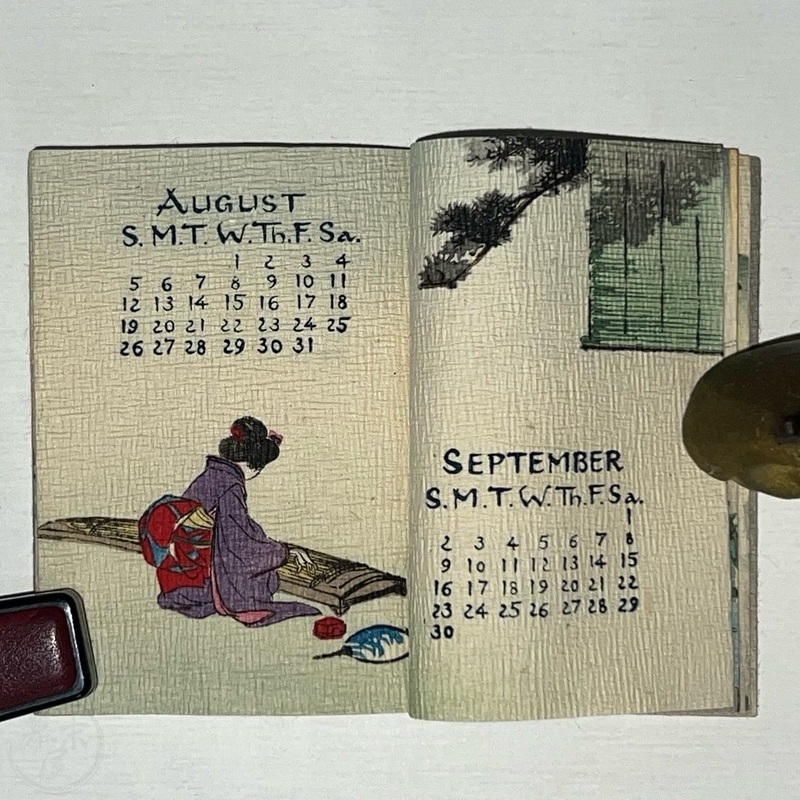 AUGUST
S. M. T. W. Th. F. Sa.
1 2 3 4
5 6 7 8 9 10 11
12 13 14 15 16 17 18
19 20 21 22 23 24 25
26 27 28 29 30 31
SEPTEMBER
S. M. T. W. Th. F. Sa.
1
2 3 4 5 6 7 8
9 10 11 12 13 14 15
16 17 18 19 20 21 22
23 24 25 26 27 28 29
30